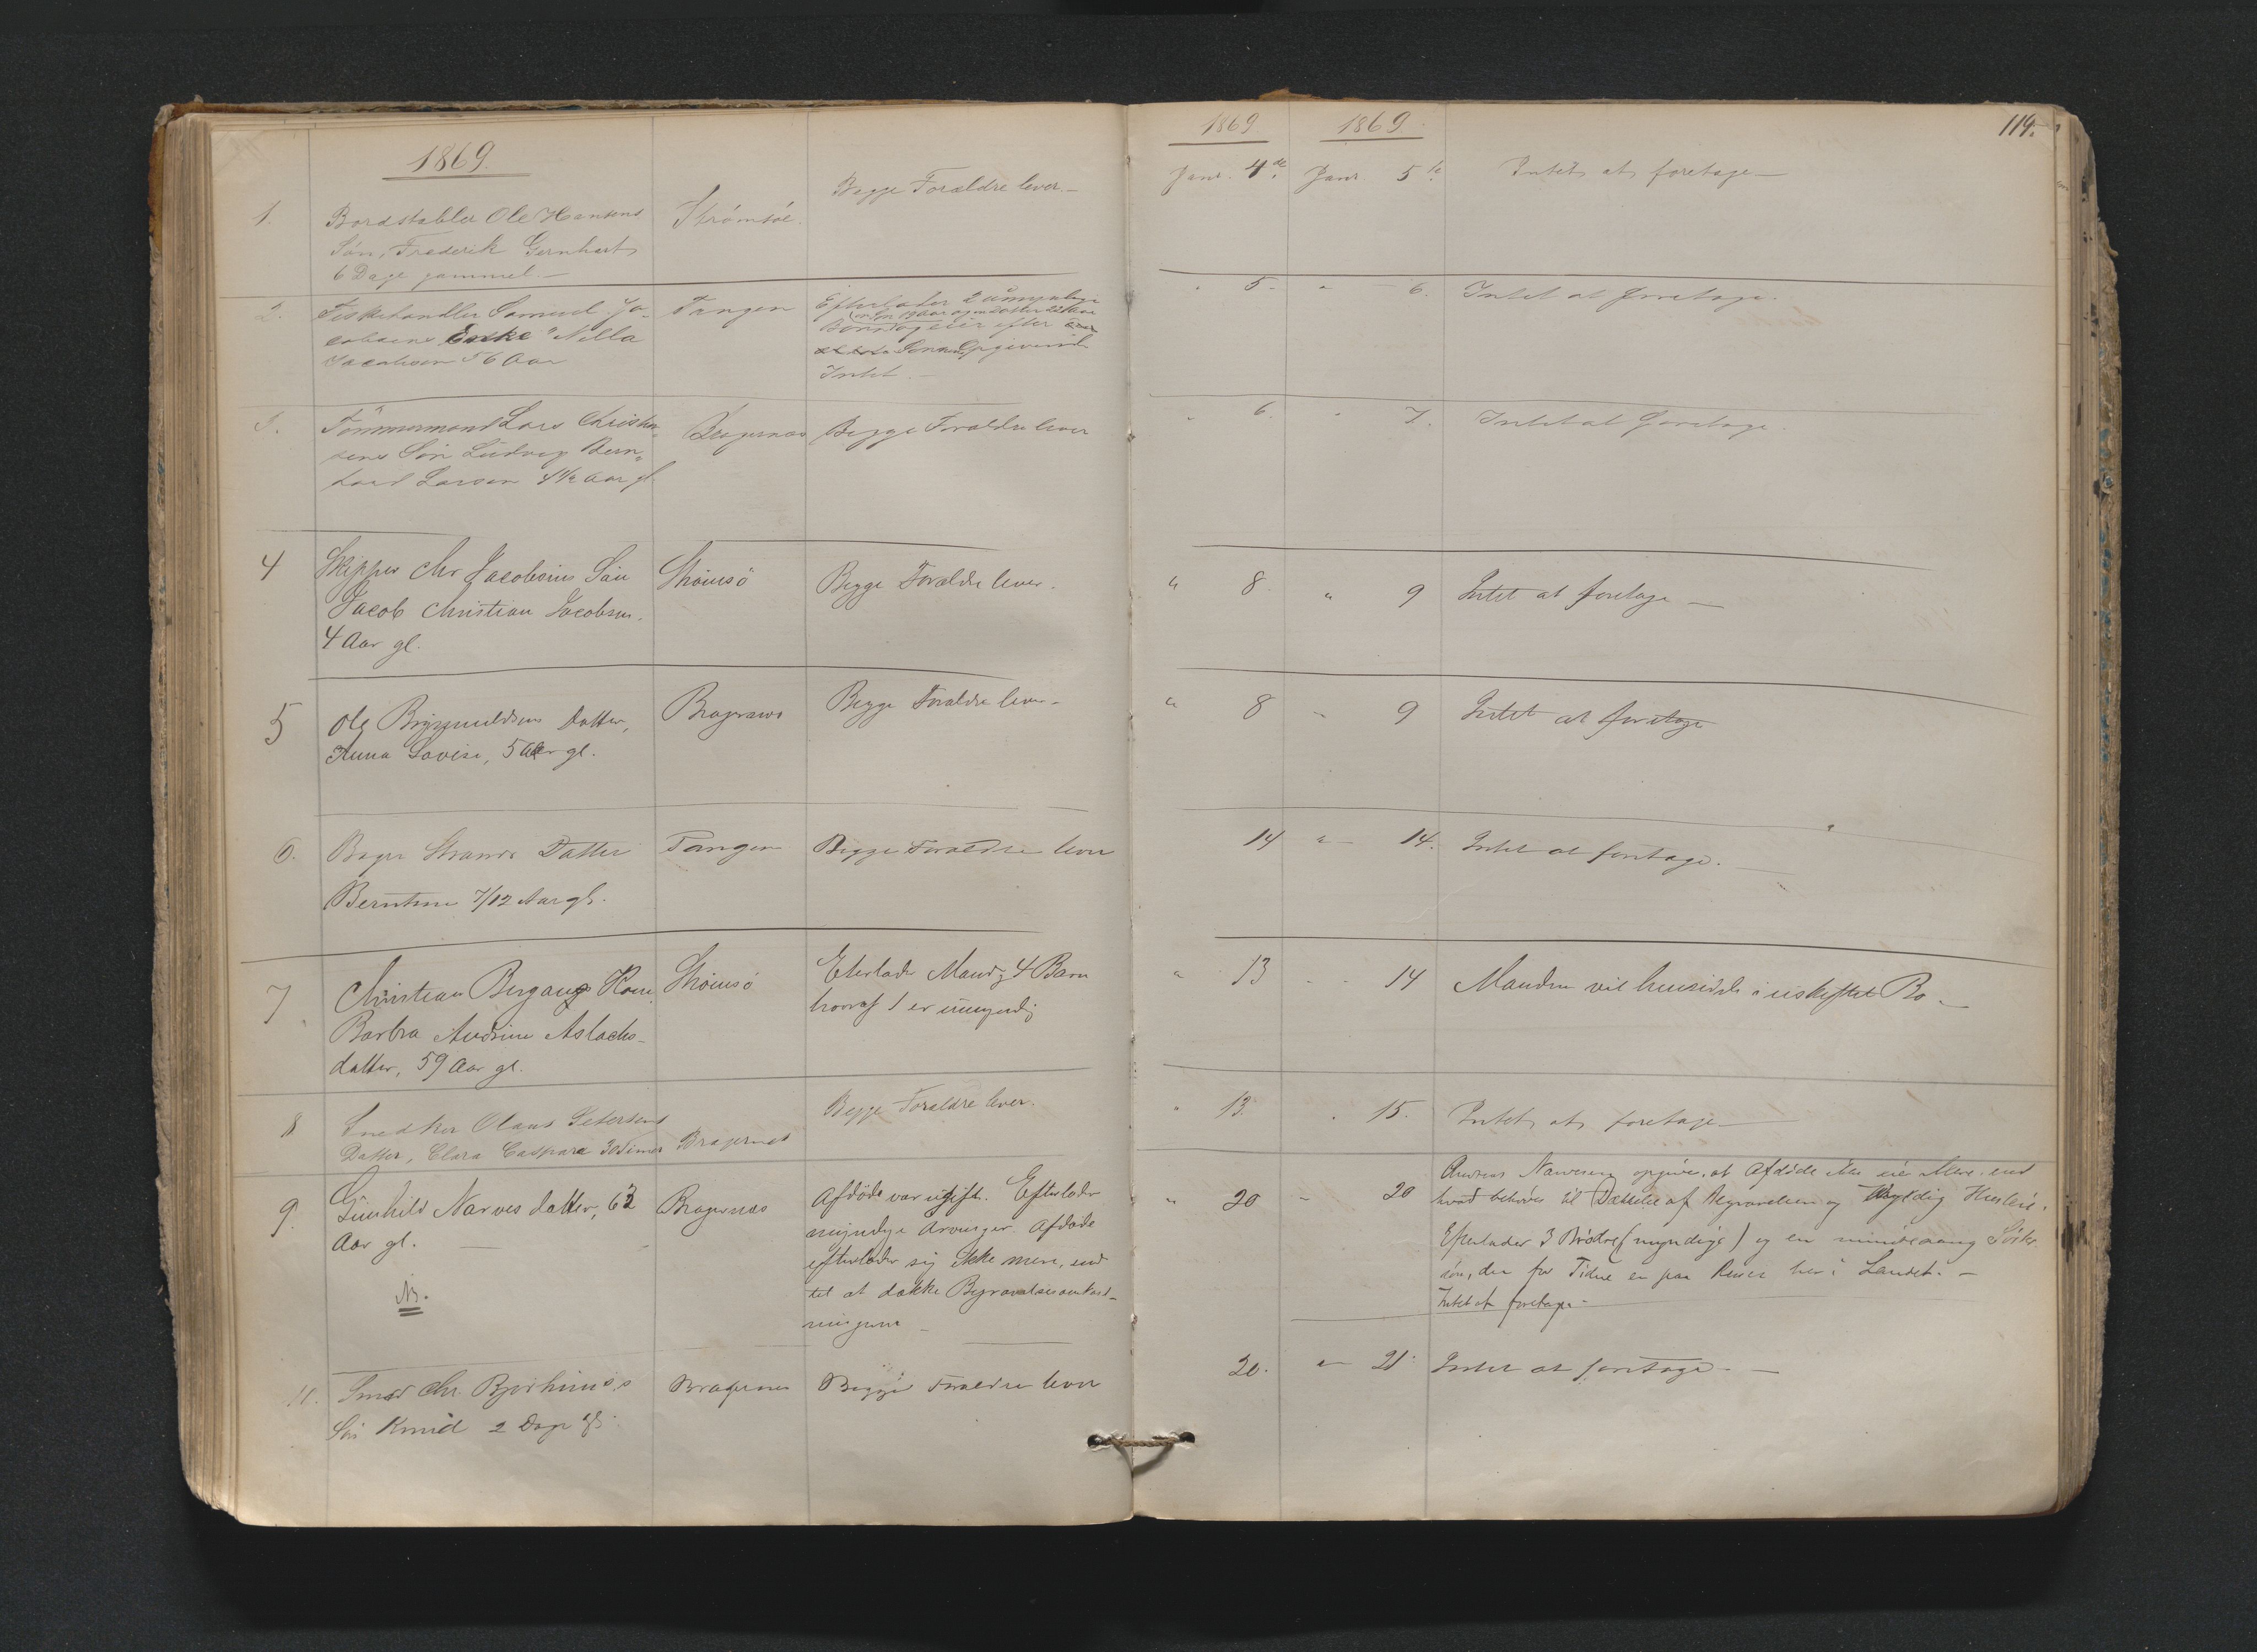 1869.
1.
Bordstabler Ole Hansens
Søn, Frederik Gernhart
6 Dage gammel. —
Strømsøe.
Begge Forældre lever. —
2.
Fiskehandler Samuel Ja-
cobsens Enke Nilla
Jacobsen 56 Aar
Tangen
Efterlader 2 umyndige
Sønnens Opgivende
Intet. —
3.
Tømmermand Lars Christen-
sens Søn Ludvig Bern-
hard Larsen 4½ Aar gl.
Bragernæs
Begge Forældre lever
4
Skipper Chr Jacobsens Søn
Jacob Christian Jacobsen.
4 Aar gl.
Strømsø
Begge Forældre lever.
5
Ole Brynnildsens Datter,
Anna Lovise, 5 Aar gl.
Bragernæs
Begge Forældre lever.
6.
Bager Strands Datter
Berntine 7/12 Aar gl.
Tangen
Begge Forældre lever
7
Christian Bergans Kone
Barbra Andrine Aslachs-
datter, 59 Aar gl.
Strømsø
Efterlader Mand, 4 Børn
hvoraf 1 er umyndig
8
Snedker Olaus Petersens
Datter, Clara Caspara 30 Timer
Bragernæs
Begge Forældre lever.
9.
Gunhild Narvesdatter, 63
Aar gl. —
Nb.
Bragernæs
Afdøde var ugift. Efterlader
myndige Arvinger. Afdøde
efterlader sig ikke mere, end
til at dække Begravelsesomkost-
ningerne —
11.
Smed Chr. Bjerknes's
Søn Knud 2 Dage gl.
Bragernes
Begge Forældre lever
1869
1869
119.
Janr. 4de
Janr 5te
Intet at foretage —
" 5. " 6. Intet at foretage.
" 6. " 7. Intet at foretage.
" 8. " 9 Intet at foretage —
" 8 " 9 Intet at foretage
14 " 14. Intet at foretage. —
" 13 " 14 Manden vil hensidde i uskiftet Bo. —
" 13. " 15. Intet at foretage —
" 20 " 20
Narvesen opgiver, at Afdøde ikke eier mere end
hvad behøves til Dækkelse af Begravelsen og skyldig Husleie.
Efterlader 3 Brødre (myndige) og en mindreaarig Søster-
søn, der for Tiden er paa Reiser her i Landet. —
Intet at foretage. —
20. " 21. Intet at foretage. —